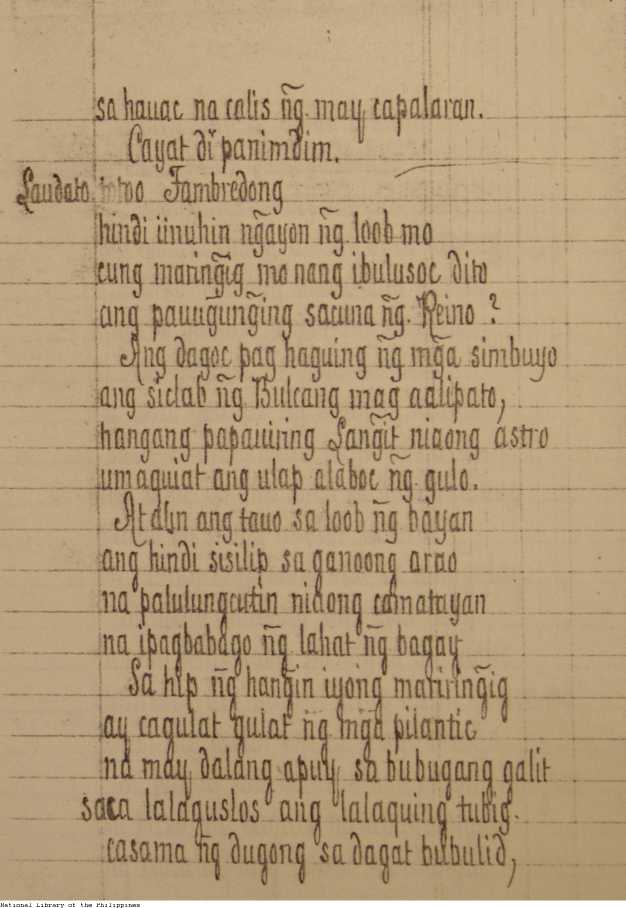 sa hauac na calis n͠g. may capalaran.
Cayat di panimdim.
Laudato. totoo Fambredong
hindi iinuhin n͠gayon n͠g loob mo
cung marin͠gig mo nang ibulusoc dito
ang pauugung͠ing sacuna n͠g. Reino ?
Ang dagoc pag haguing n͠g m͠ga simbuyo
ang siclab n͠g Bulcang mag aalipato,
hangang papauiring Lan͠git niaong astro
umaquiat ang ulap alaboc n͠g. gulo.
At alin ang tauo sa loob n͠g bayan
ang hindi sisilip sa ganoong arao
na palulungcutin niaong camatayan
na ipagbabago n͠g lahat n͠g bagay
Sa hip n͠g han͠gin iyong maririn͠gig
ay cagulat gulat n͠g m͠ga pilantic
na may dalang apuy sa bubugang galit
saca lalaguslos ang lalaquing tubig.
casama n͠g dugong sa dagat bubulid,
National Library of the Philippines